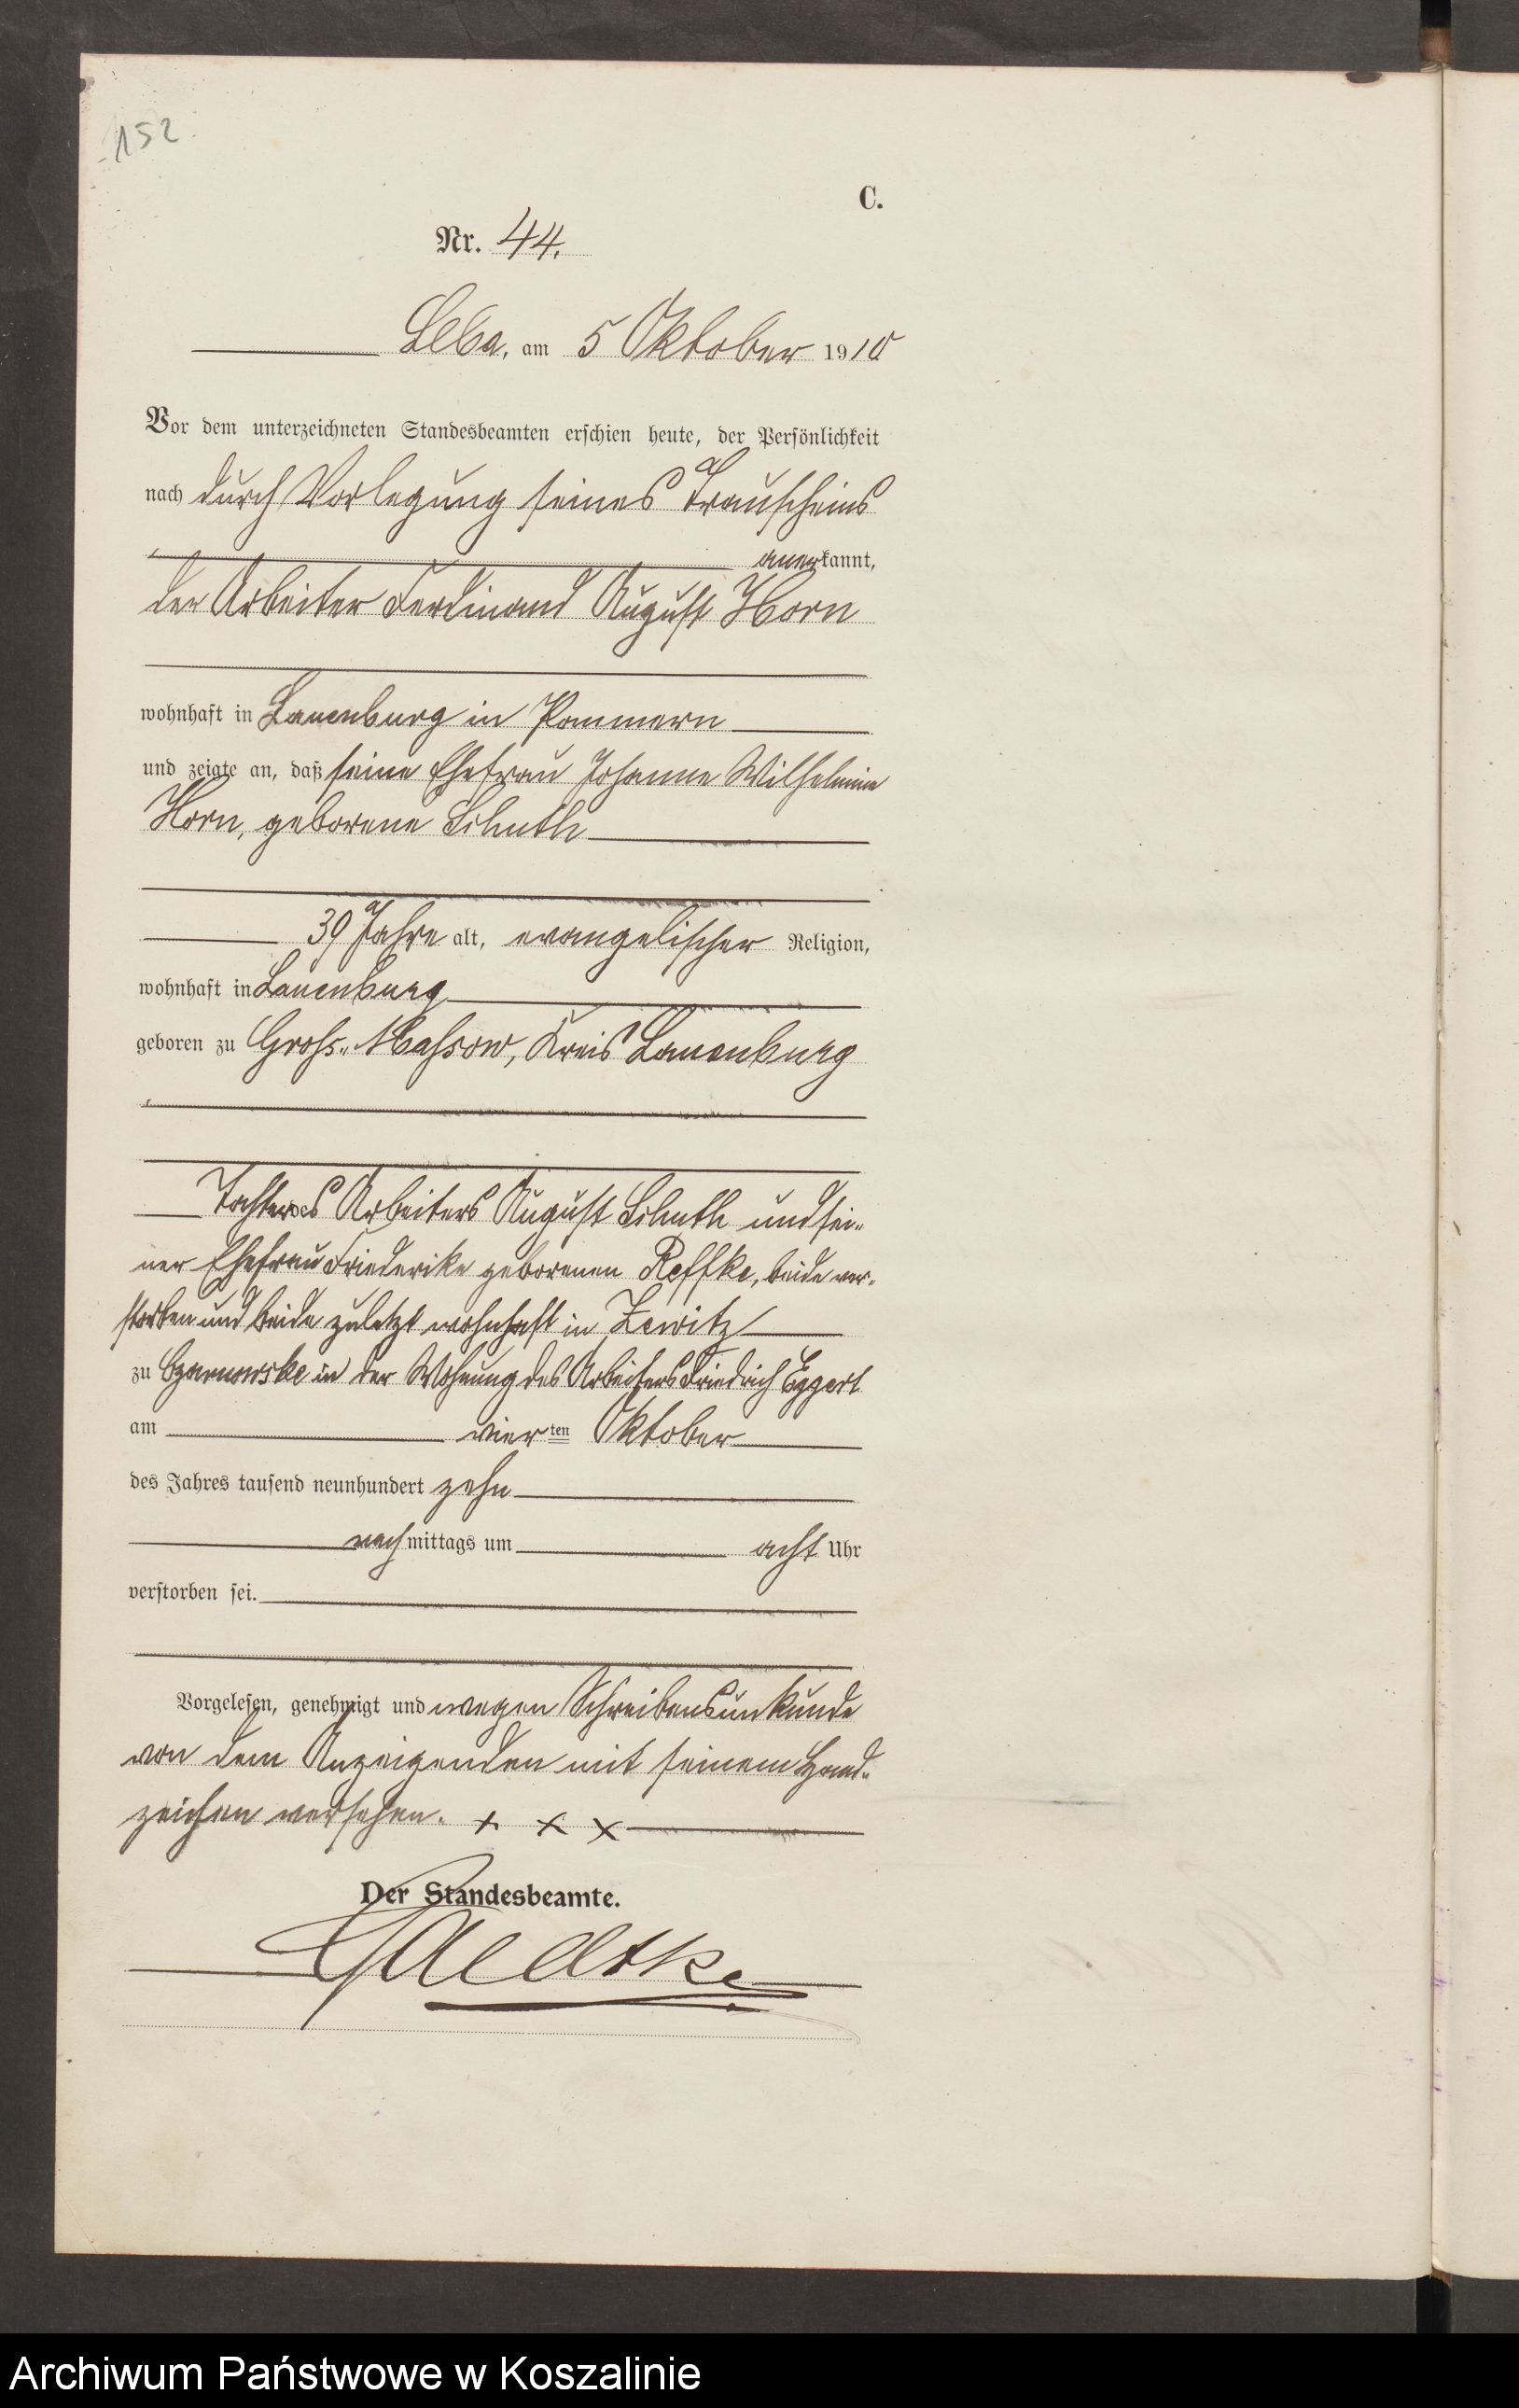 152
C.
Nr. 44.
Leba, am 5 Oktober 1910
Vor dem unterzeichneten Standesbeamten erschien heute, der Persönlichkeit
nach durch Vorlegung seines Trauscheins
anerkannt,
der Arbeiter Ferdinand August Horn
wohnhaft in Lauenburg in Pommern
und zeigte an, daß seine Ehefrau Johanne Wilhelmine
Horn, geborene Schuth
39 Jahre alt, evangelischer Religion,
wohnhaft in Lauenburg
geboren zu Gross-Massow, Kreis Lauenburg
Tochter des Arbeiters August Schuth und sei-
ner Ehefrau Friederike geborenen Reffke, beide ver-
storben und beide zuletzt wohnhaft in Zewitz
zu Czarnowske in der Wohnung des Arbeiters Friedrich Eggert
am vierten Oktober
des Jahres tausend neunhundert zehn
nachmittags um acht Uhr
verstorben sei.
Vorgelesen, genehmigt und wegen Schreibensunkunde
von dem Anzeigenden mit seinem Hand-
zeichen versehen. + x x
Der Standesbeamte.
Gaedtke
Archiwum Państwowe w Koszalinie